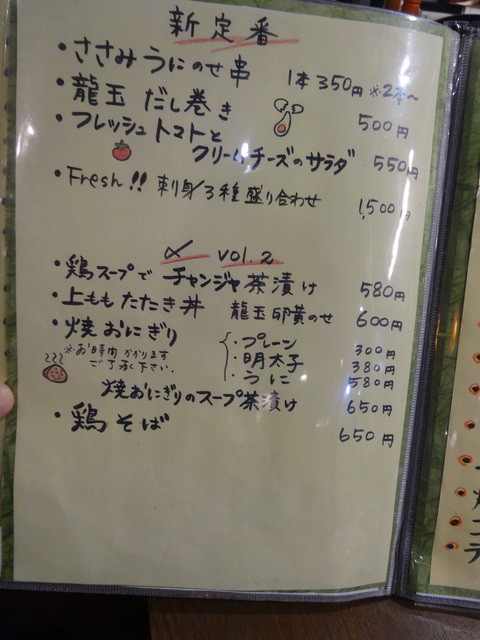 新定番
・ささみうにのせ串 1本350円 ※2本〜
・龍玉 だし巻き 500円
・フレッシュトマトと
クリームチーズのサラダ 550円
・Fresh!! 刺身3種盛り合わせ 1,500円
〆 vol.2
・鶏スープで チャンジャ茶漬け 580円
・上ももたたき丼 龍玉卵黄のせ 600円
・焼おにぎり
・プレーン 300円
・明太子 380円
・うに 580円
※お時間かかります
ご了承下さい。
焼おにぎりのスープ茶漬け 650円
・鶏そば 650円